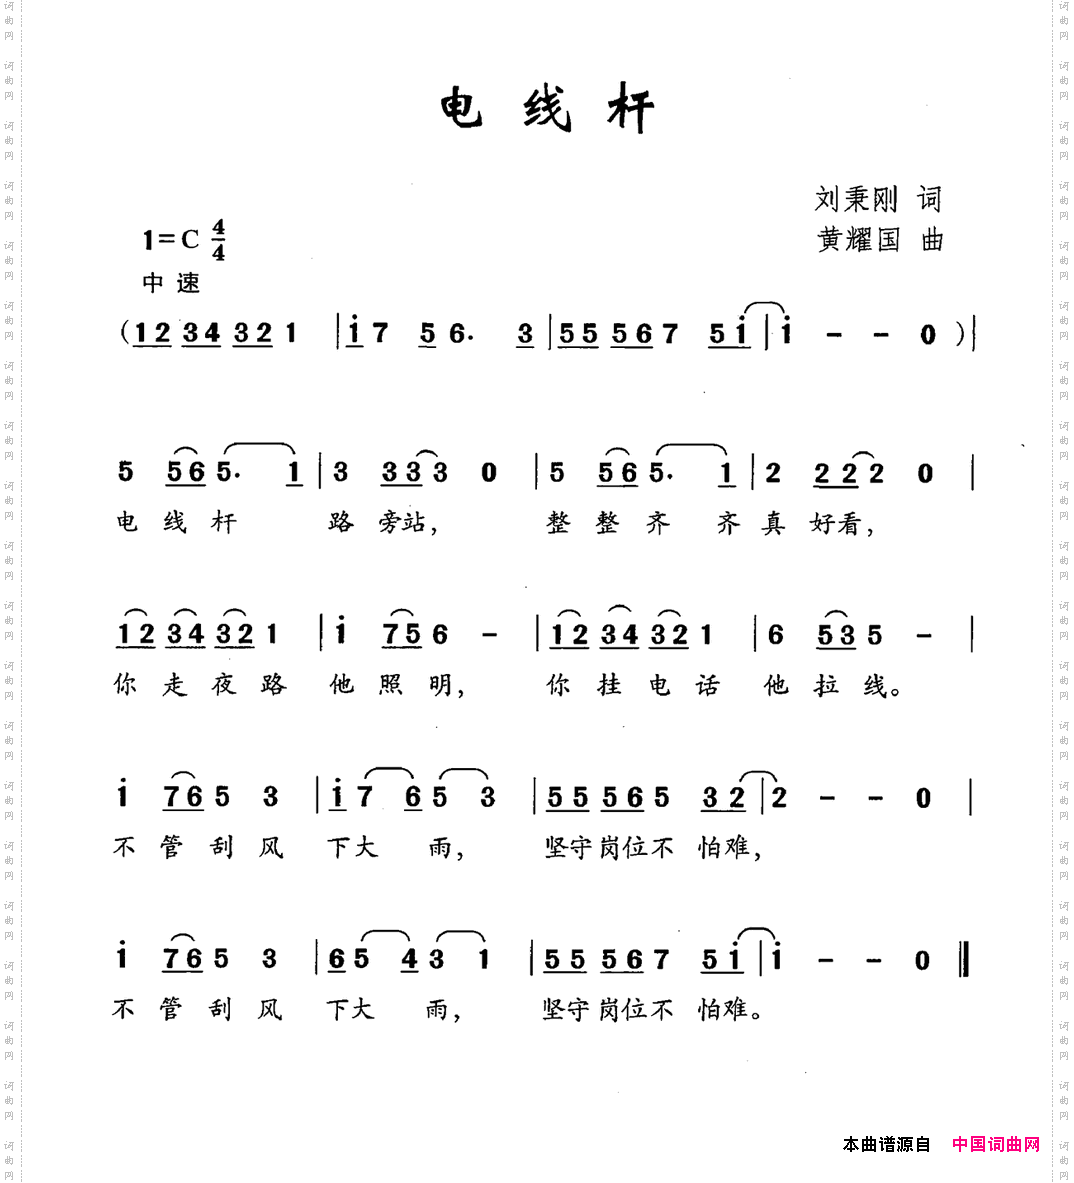 电线杆
刘秉刚 词
1=C 4/4
黄耀国 曲
中速
(12 34 32 1 | i7 5 6. 3 | 55 567 5i | i - - 0 )|
5 56 5. 1 | 3 333 0 | 5 56 5. 1 | 2 222 0 |
电 线 杆 路 旁站， 整 整 齐 齐 真 好看，
12 34 32 1 | i 75 6 - | 12 34 32 1 | 6 53 5 - |
你 走 夜 路 他 照 明， 你 挂 电 话 他 拉 线。
i 76 5 3 | i7 6 5 3 | 55 56 5 32 | 2 - - 0 |
不 管 刮 风 下大 雨， 坚守岗位不 怕难，
i 76 5 3 | 65 4 3 1 | 55 56 7 5i | i - - 0 ‖
不 管 刮 风 下大 雨， 坚守岗位不 怕难。
本曲谱源自 中国词曲网